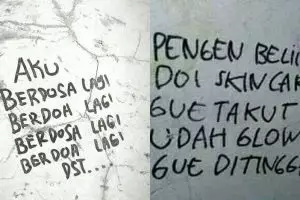 AKU
BERDOSA LAGI
BERDOA LAGI
BERDOSA LAGI
BERDOA LAGI
DST...
PENGEN BELI
DOI SKINCAR
GUE TAKUT
UDAH GLOW
GUE DITINGG